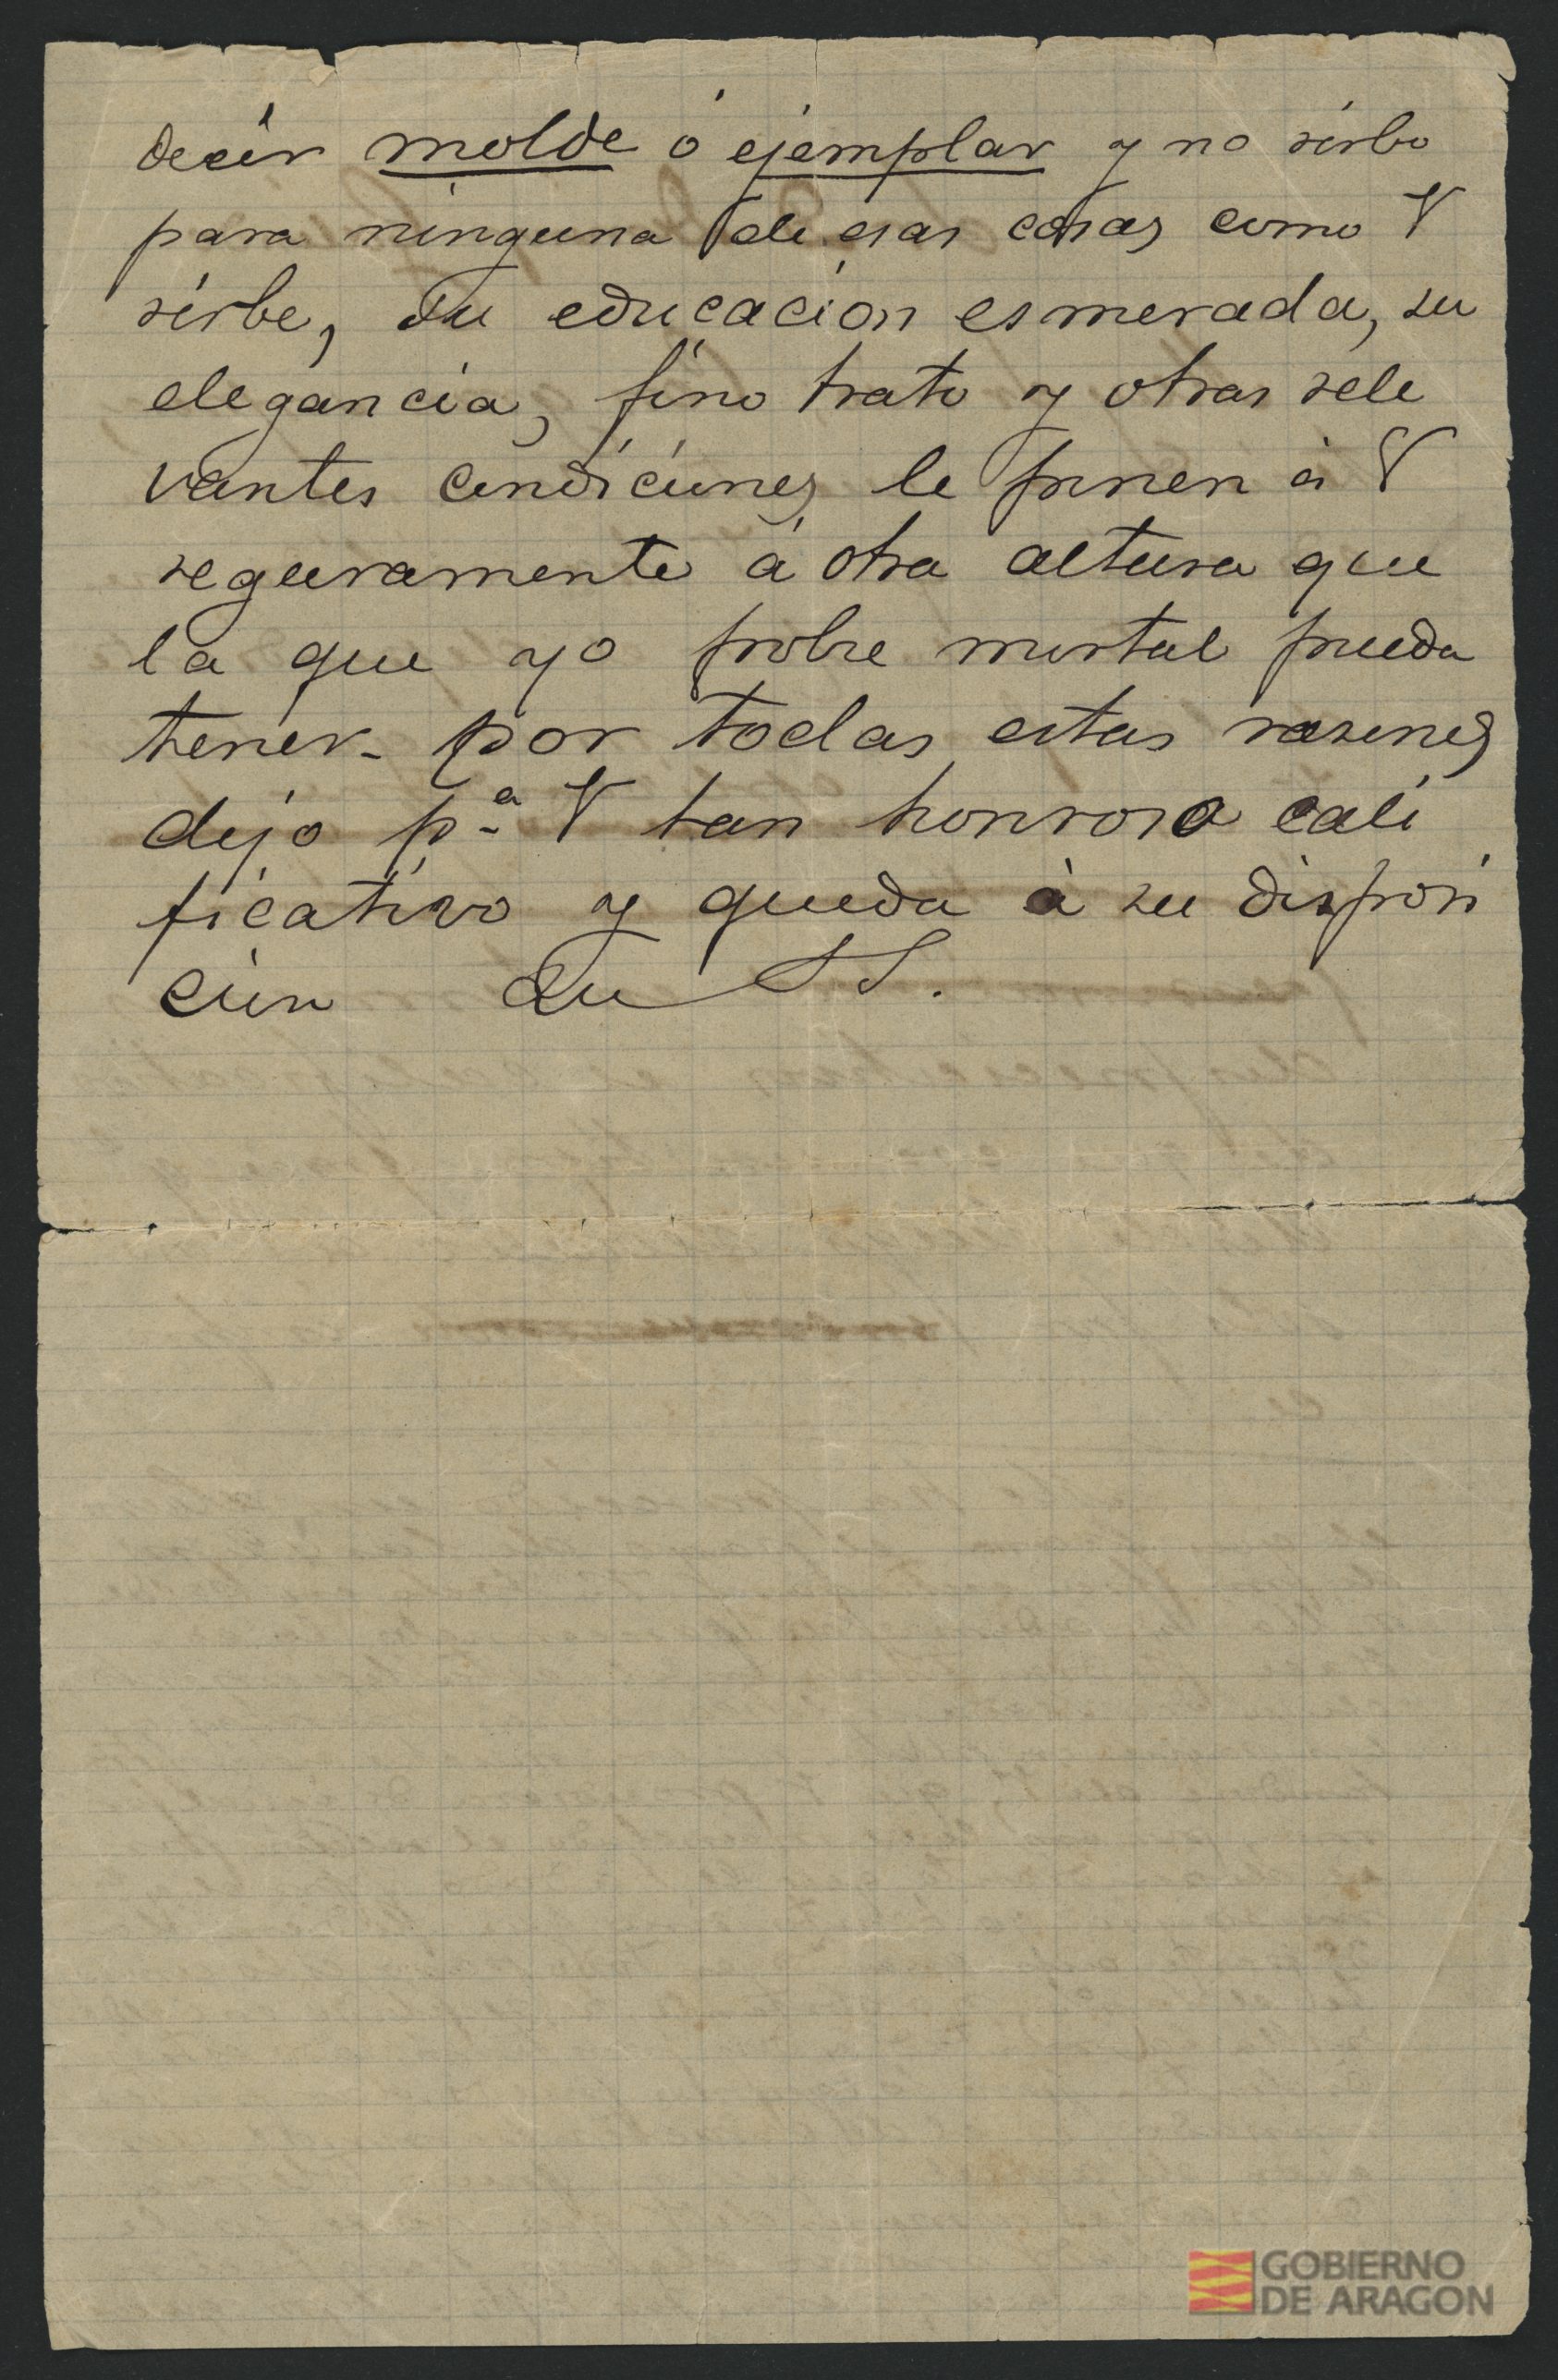 decir molde ó ejemplar y no sirbo
para ninguna de esas cosas como V
sirbe, su educación esmerada, su
elegancia, fino trato y otras rele
vantes condiciones le ponen á V
seguramente á otra altura que
la que yo pobre mortal pueda
tener- por todas estas rasones
dejo p.ª V tan honroso cali
ficativo y queda á su disposi
cion Su SS.
GOBIERNO
DE ARAGON